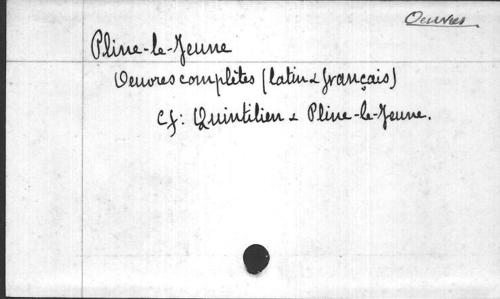 Oeuvres
Pline-le-Jeune
Oeuvres complètes (latin & français)
Cf: Quintilien & Pline-le-Jeune.